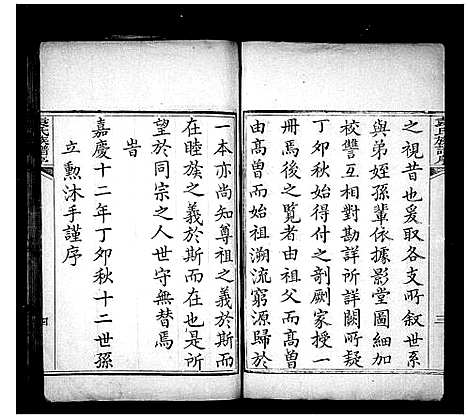 之視昔也爰取各支所叙世系
與弟姪孫輩依據影堂圖細加
校讐互相對勘詳所詳闕所疑
丁卯秋始得付之剞劂家授一
冊焉後之覧者由祖父而高曽
由高曽而始祖溯流窮源歸於
一本亦尚知尊祖之義於斯而
在睦族之義於斯而在也是所
望於同宗之人世守無替焉
旹
嘉慶十二年丁卯秋十二世孫
立勲沐手謹序
氏族譜序
三
四